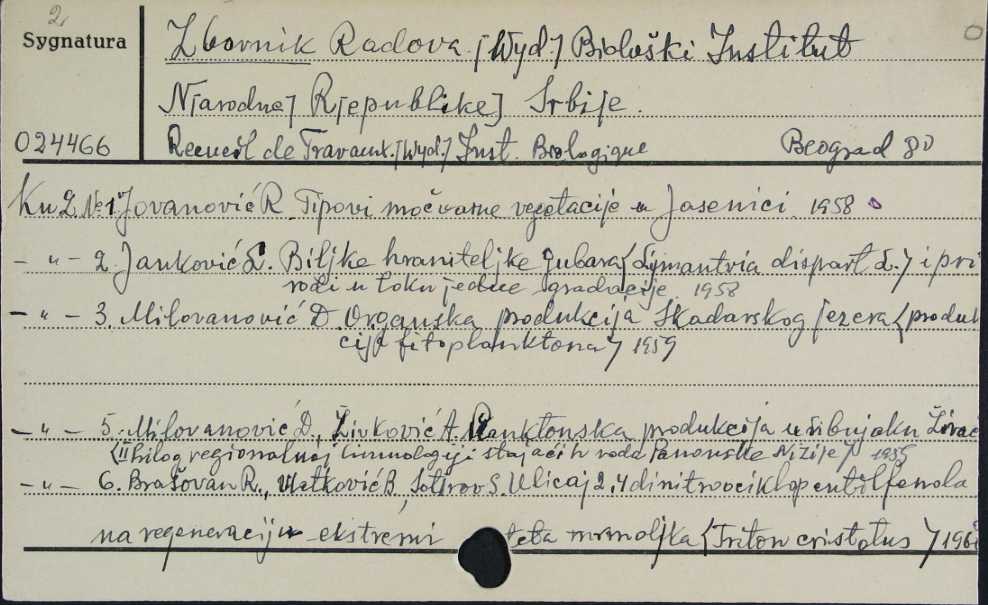 2.
Sygnatura
Zbornik Radova. [Wyd.] Biološki Institut
N[arodne] R[epublike] Srbije.
024466
Recueil de Travaux. [Wyd.] Inst. Biologique Beograd 80
Kn 2 № 1 Jovanović R. Tipovi močvarne vegetacije u Jasenici 1958
- " - 2. Janković L. Biljke hraniteljke gubara (Lymantria dispart L.) i pri
rodi u toku jedne gradacije. 1958
- " - 3. Milovanović D. Organska produkcija Skadarskog jezera (produk
cija fitoplanktona) 1959
- " - 5. Milovanović D., Živković A. Planktonska produkcija u ribnjaku Živač
(II prilog regionalnoj limnologiji stajacih voda Panonske Nizije) 1959
- " - 6. Brašovan R., B., Sotirov S. Uticaj 2,4 dinitroociklopentilfenola
na regeneraciju ekstremi teta mrmoljka (Triton cristatus)